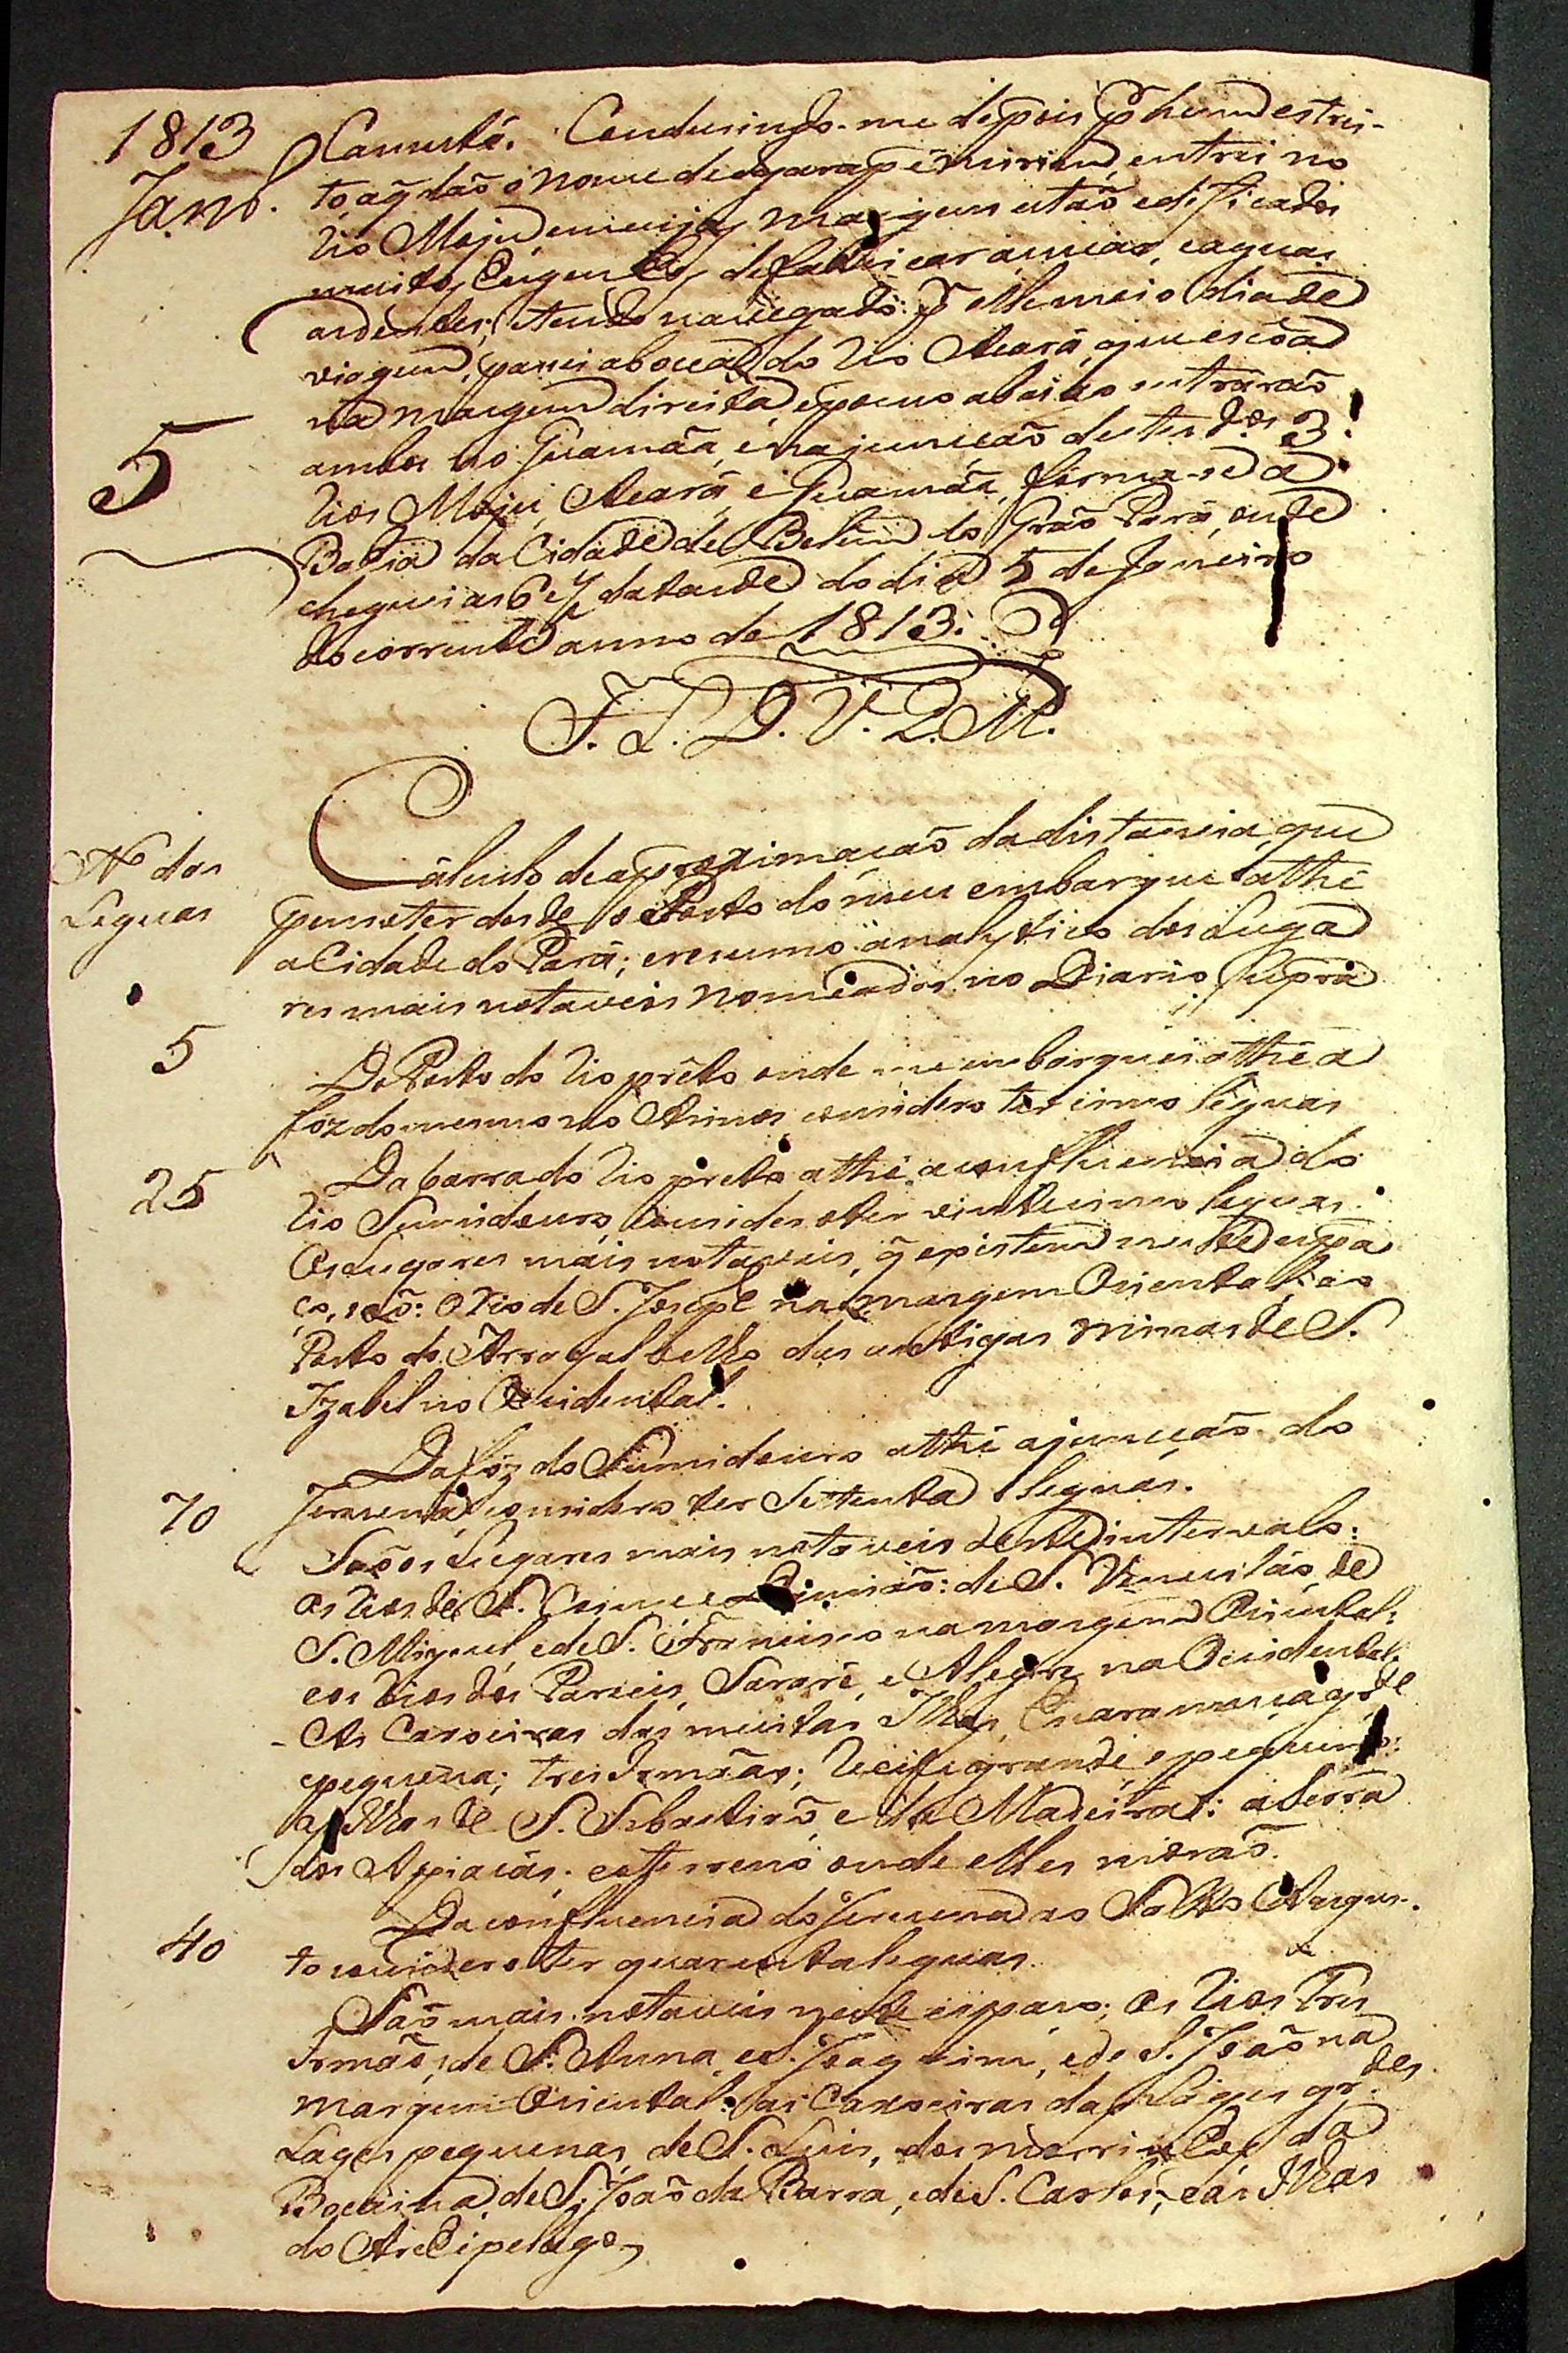 1813
Janr.º
Camutá. Condusindo-me depois p.r hum estrei-
to a q̃ dão o nome de Igarapé mirim, entrei no
Rio Mojú, em cujas margens estão edificados
muitos Engenhos de fabricar assucar, e aguas
ardentes; e tendo navegado p.r elle meio dia de
viagem, passei a boca do Rio Acará, que escôa
na margem direita, e pouco abaixo entrarão
ambos no Guamáa, e na juncção destes d.os 3
Rios Mojú, Acará, e Guamáa, forma-se a
5
Bahia da Cidade de Belem do Grão Pará, onde
cheguei as 6 ½ da tarde do dia 5 de Janeiro
do corrente anno de 1813.
F. L. D. V. D. M.
N.º das
Leguas
Cálculo de aproximação da distancia, que
pense ter desde o Porto do meu embarque athé
a Cidade do Pará; e resumo analytico dos Luga
res mais notaveis nomeados no Diario supra
5
Do Porto do Rio prêto onde me embarquei athé a
foz do mesmo no Arinos, considero ter cinco léguas
25
Da barra do Rio prêto athé a confluencia do
Rio Sumidouro, considero ter vinte cinco leguas.
Os lugares mais notaveis, q̃ existem neste espa
ço, são: O Rio de S. José na margem Oriental; e o
Porto do Arrayal velho das antigas minas de S.
Izabel no Occidental.
Da fóz do Sumidouro athé a juncção do
70
Juruena, considero ter Settenta leguas.
São os Lugares mais notaveis deste intervalo:
Os Rios de S. Cosme e Damião: de S. Wenceslão, de
S. Miguel, e de S. Francisco na margem Oriental:
e os Rios dos Parecis, Sararé, e Alegre na Occidental.
As Caxoeiras das muitas Ilhas, g.de
e pequena; tres Irmãas; Recife grande, e pequeno:
as Ilhas de S. Sebastião, e da Madeira: a Serra
dos Apiacás, e o terreno onde elles morão.
Da confluencia do Juruena ao Salto Augus-
40
to considero ter quarenta leguas.
São mais notaveis neste espaço; os Rios Tres
Irmãos, de S. Anna, e S. Joaquim, e de S. João na
margem Oriental: as Caxoeiras das Lages gr.des
Lages pequenas, de S. Luis, dos morrinhos, da
Bocaina, de S. João da Barra, e de S. Carlos; e as Ilhas
do Archipelago,